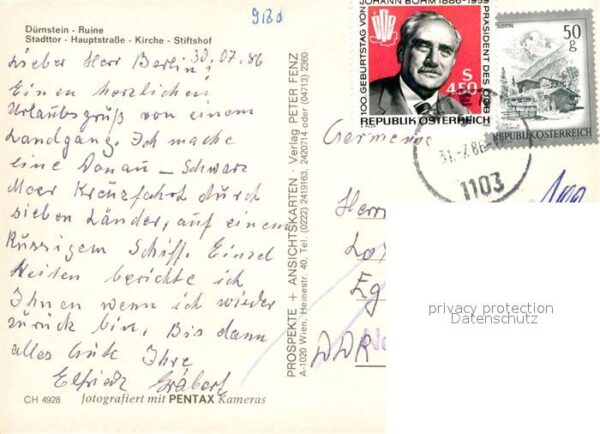 918d
Dürnstein - Ruine
Stadttor - Hauptstraße - Kirche - Stiftshof
30.07.86
Lieber Herr Berlin!
Einen herzlichen
Urlaubsgruß von einem
Landgang. Ich mache
eine Donau - Schwarz
Meer Kreuzfahrt durch
sieben Länder, auf einem
Russigem Schiff. Einzel
heiten berichte ich
Ihnen wenn ich wieder
zurück bin. Bis dann
alles Gute Ihre
Elfriede
CH 4928 fotografiert mit PENTAX Kameras
PROSPEKTE + ANSICHTSKARTEN · Verlag PETER FENZ
A-1020 Wien, Heinestr. 40, Tel. (0222) 2419163, 2420714 oder (04713) 2360
100. GEBURTSTAG VON JOHANN BÖHM 1886-1959 PRÄSIDENT DES ÖGB
ÖGB
S
4.50
REPUBLIK ÖSTERREICH
50
g
REPUBLIK ÖSTERREICH
31.-7.86
1103
Herrn
Eg
DDR
privacy protection
Datenschutz